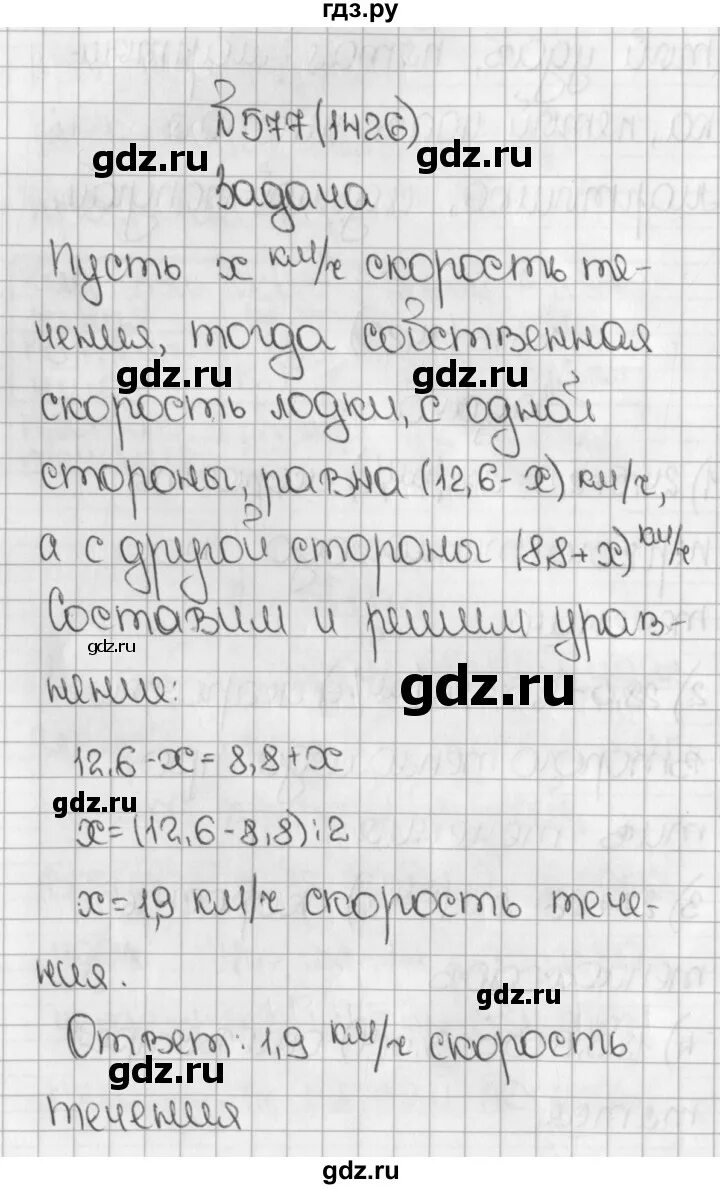 гдз.ру
№577(1426)
gdz.ru
gdz.ru
Задача
Пусть x км/ч скорость те-
чения, тогда собственная
gdz.ru
gdz.ru
скорость лодки, с одной
стороны, равна (12,6-x) км/ч,
а с другой стороны (8,8+x) км/ч
Составим и решим урав-
gdz.ru
нение:
gdz.ru
12,6-x=8,8+x
gdz.ru
x=(12,6-8,8):2
x=1,9 км/ч скорость тече-
ния.
gdz.ru
Ответ: 1,9 км/ч скорость
gdz.ru
течения
gdz.ru